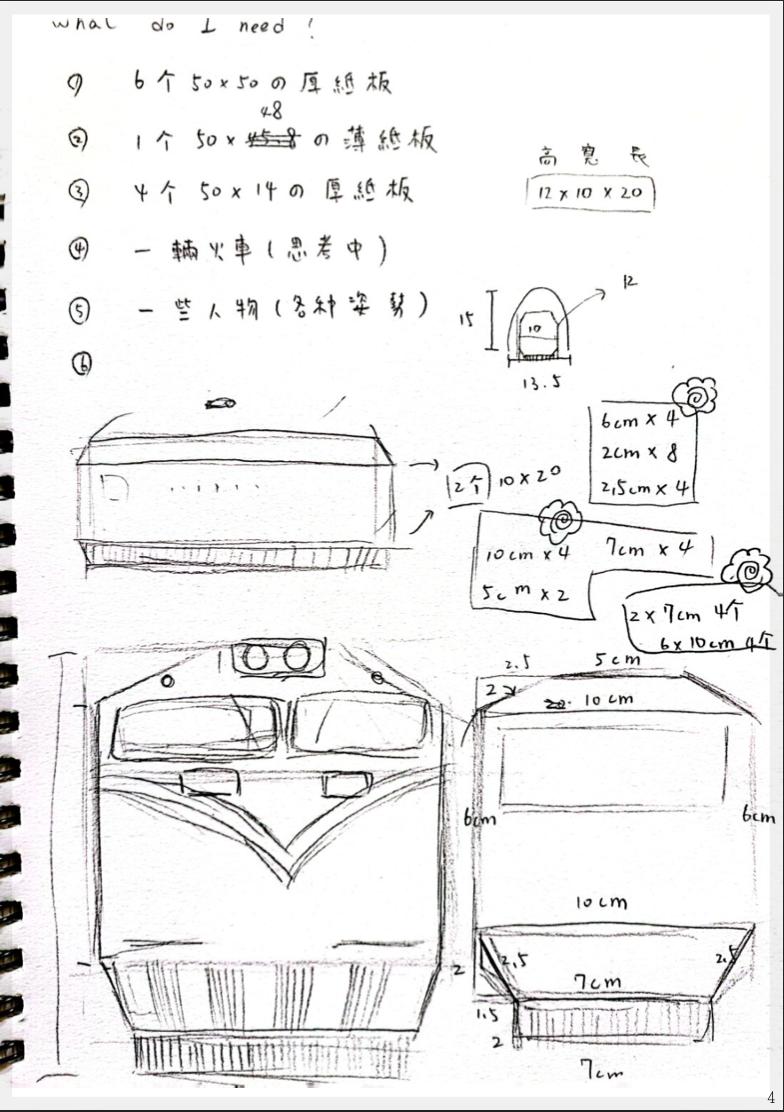 what do I need ?
① 6个 50×50 の 厚紙板
48
② 1个 50× の 薄紙板
③ 4个 50×14 の 厚紙板
④ 一輛火車(思考中)
⑤ 一些人物(各种姿勢)
⑥
高 寬 長
12×10×20
12
15
10
13.5
6cm×4
2cm×8
2.5cm×4
2个 10×20
10cm×4 7cm×4
5cm×2
2×7cm 4个
6×10cm 4个
2.5 5cm
2
10cm
6cm 6cm
10cm
2.5 2.5
2
7cm
1.5
2
7cm
4